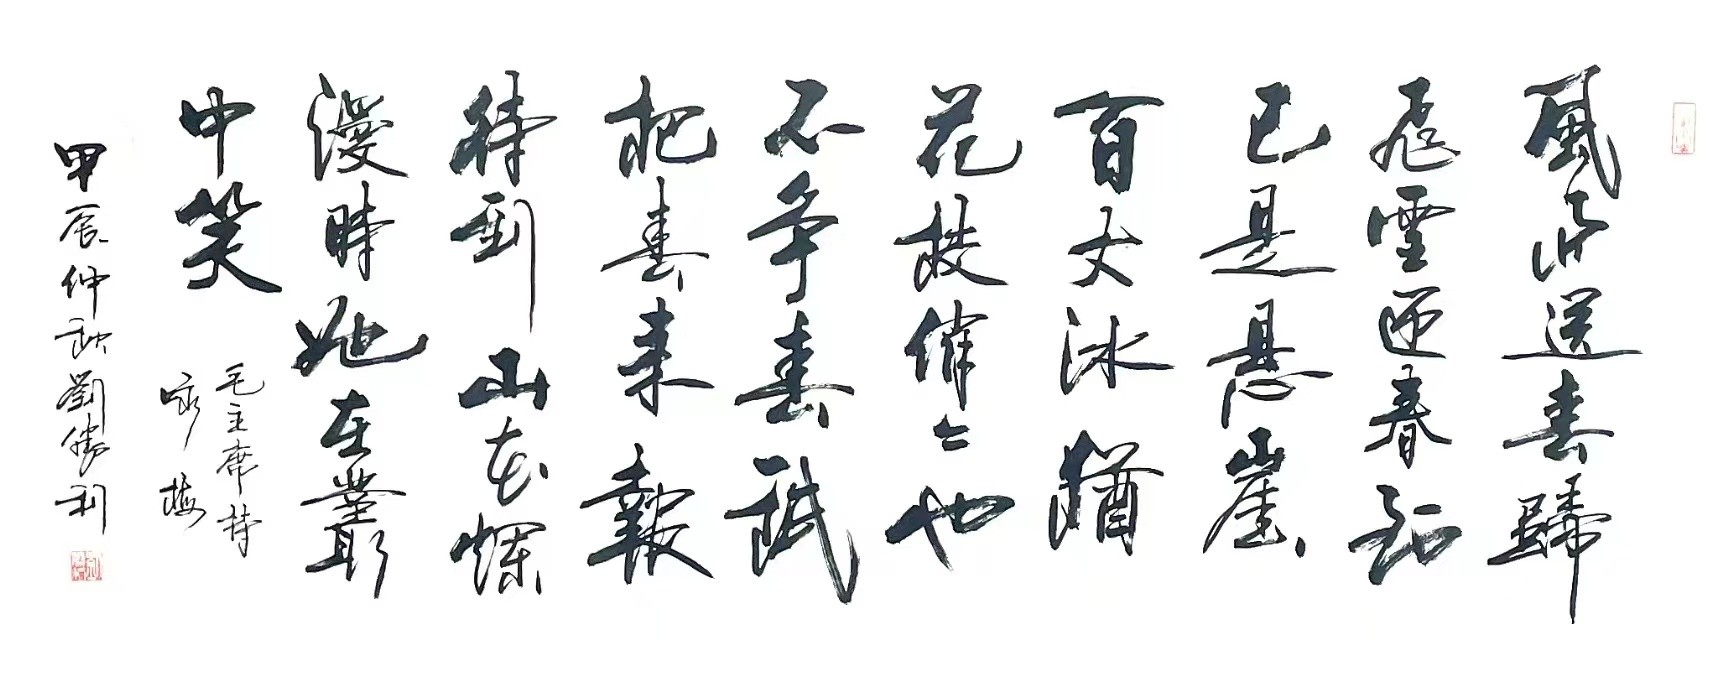 風雨送春歸
飛雪迎春到
已是悬崖
百丈冰猶
花枝俏々也
不争春祇
把春来報
待到山花爛
漫時她在叢
中笑
毛主席詩
咏梅
甲辰仲秋劉勝利